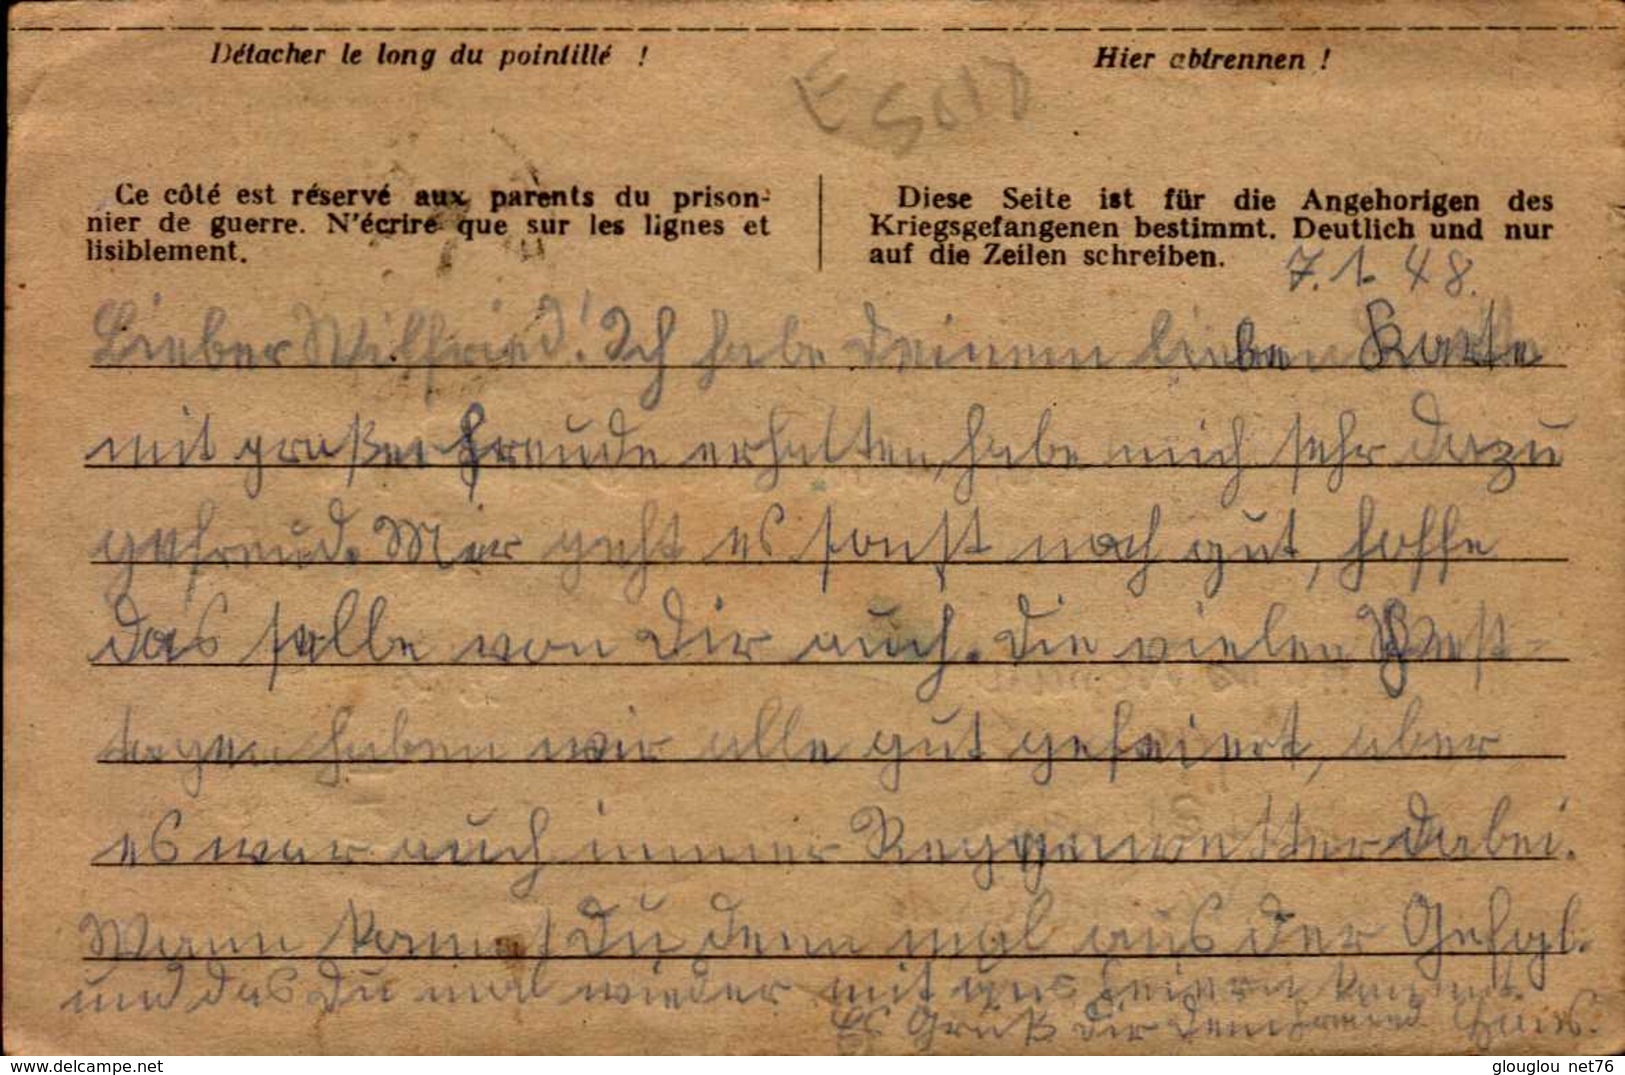 Détacher le long du pointillé !
Hier abtrennen !
Ce côté est réservé aux parents du prison-
nier de guerre. N'écrire que sur les lignes et
lisiblement.
Diese Seite ist für die Angehorigen des
Kriegsgefangenen bestimmt. Deutlich und nur
auf die Zeilen schreiben.
7. 1. 48.
Lieber Wilfried! Ich habe Deinem lieben Karte
mit großer Freude erhalten, habe mich sehr dazu
gefreud. Mir geht es sonst noch gut, hoffe
das selbe von Dir auch. Die vielen Fest-
tagen haben wir alle gut gefeiert, aber
es war auch immer Reggenwetter dabei.
Wann kannst Du denn mal aus der
und das Du mal wieder mit uns feiern kannst.
Es Grüß Dir Dein Freund Hans.
glouglou net76